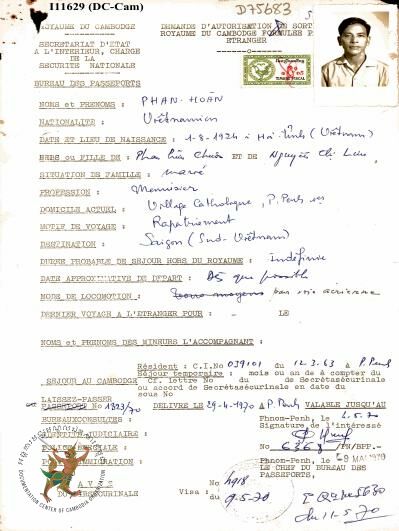 I11629 (DC-Cam)
D75683
ROYAUME DU CAMBODGE
SECRETARIAT D'ETAT
A L'INTERIEUR, CHARGE
DE LA
SECURITE NATIONALE
BUREAU DES PASSEPORTS
DEMANDE D'AUTORISATION DE SORT
ROYAUME DU CAMBODGE FORMULEE P
ETRANGER
NOMS et PRENOMS : PHAN-HOÀN
NATIONALITE : Vietnamien
DATE ET LIEU DE NAISSANCE : 1-8-1924 à Hà Tinh (Vietnam)
OU FILLE DE : Phan ET DE Nguyễn Thi
SITUATION DE FAMILLE : marié
PROFESSION : Menuisier
DOMICILE ACTUEL : Village Catholique, P. Penh
MOTIF DE VOYAGE : Rapatriement
DESTINATION : Saigon (Sud-Vietnam)
DUREE PROBABLE DE SEJOUR HORS DU ROYAUME : Indéfinie
DATE APPROXIMATIVE DE DEPART : Dès que possible
MODE DE LOCOMOTION : par voie aérienne
DERNIER VOYAGE A L'ETRANGER POUR : - LE
NOMS et PRENOMS DES MINEURS L'ACCOMPAGNANT :
Résident : C.I.No 039101 du 12.3.63 à P. Penh
Séjour temporaire : mois ou an de à compter du
SEJOUR AU CAMBODGE Cf. lettre No du de Secrétasécurinale
ou accord de Secrétasécurinale en date du
sous No
LAISSEZ-PASSER
PASSEPORT No 1823/70 DELIVRE LE 29-4-1970 à P. Penh VALABLE JUSQU'AU
BUREAUX CONSULTES : Phnom-Penh, le 2.5.70
IDENTITE JUDICIAIRE : Signature de l'intéressé
POLICE SPECIALE :
IMMIGRATION : No 6368 PN/BPP.-
Phnom-Penh, le 9 MAI 1970
LE CHEF DU BUREAU DES
PASSEPORTS,
AVIS No 4918
Visa : du 9.5.70
DOCUMENTATION CENTER OF CAMBODIA
du 11-5-70